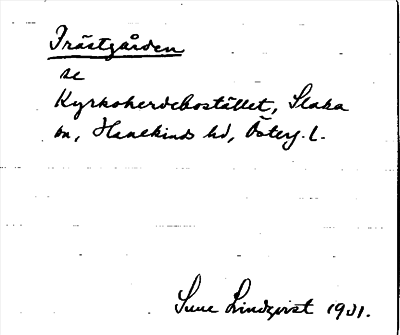 Prästgården
se
Kyrkoherdebostället, Slaka
sn, Hanekinds hd, Österg. L.
Sune Lindqvist 1931.